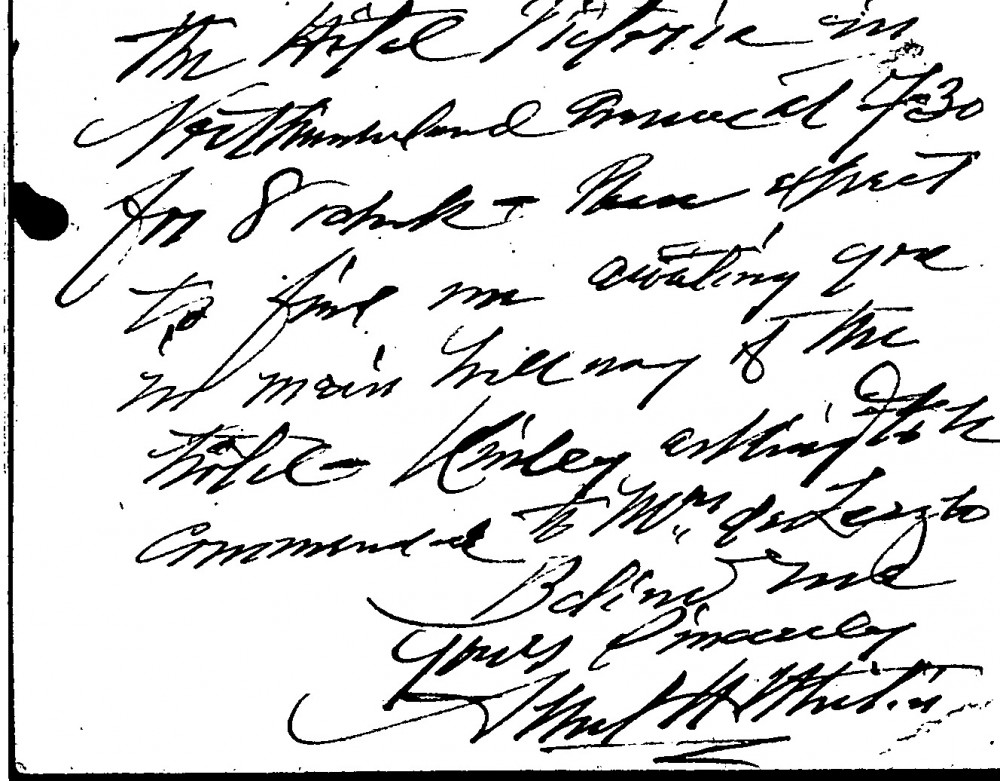 the Hotel Victoria in
Northumberland Avenue at 7-30
for 8 o'clock - Please expect
to find me awaiting you
in main hallway of the
hotel - Kindly asking to be
commended to Mrs de Laszlo
Believe me
Yours Sincerely